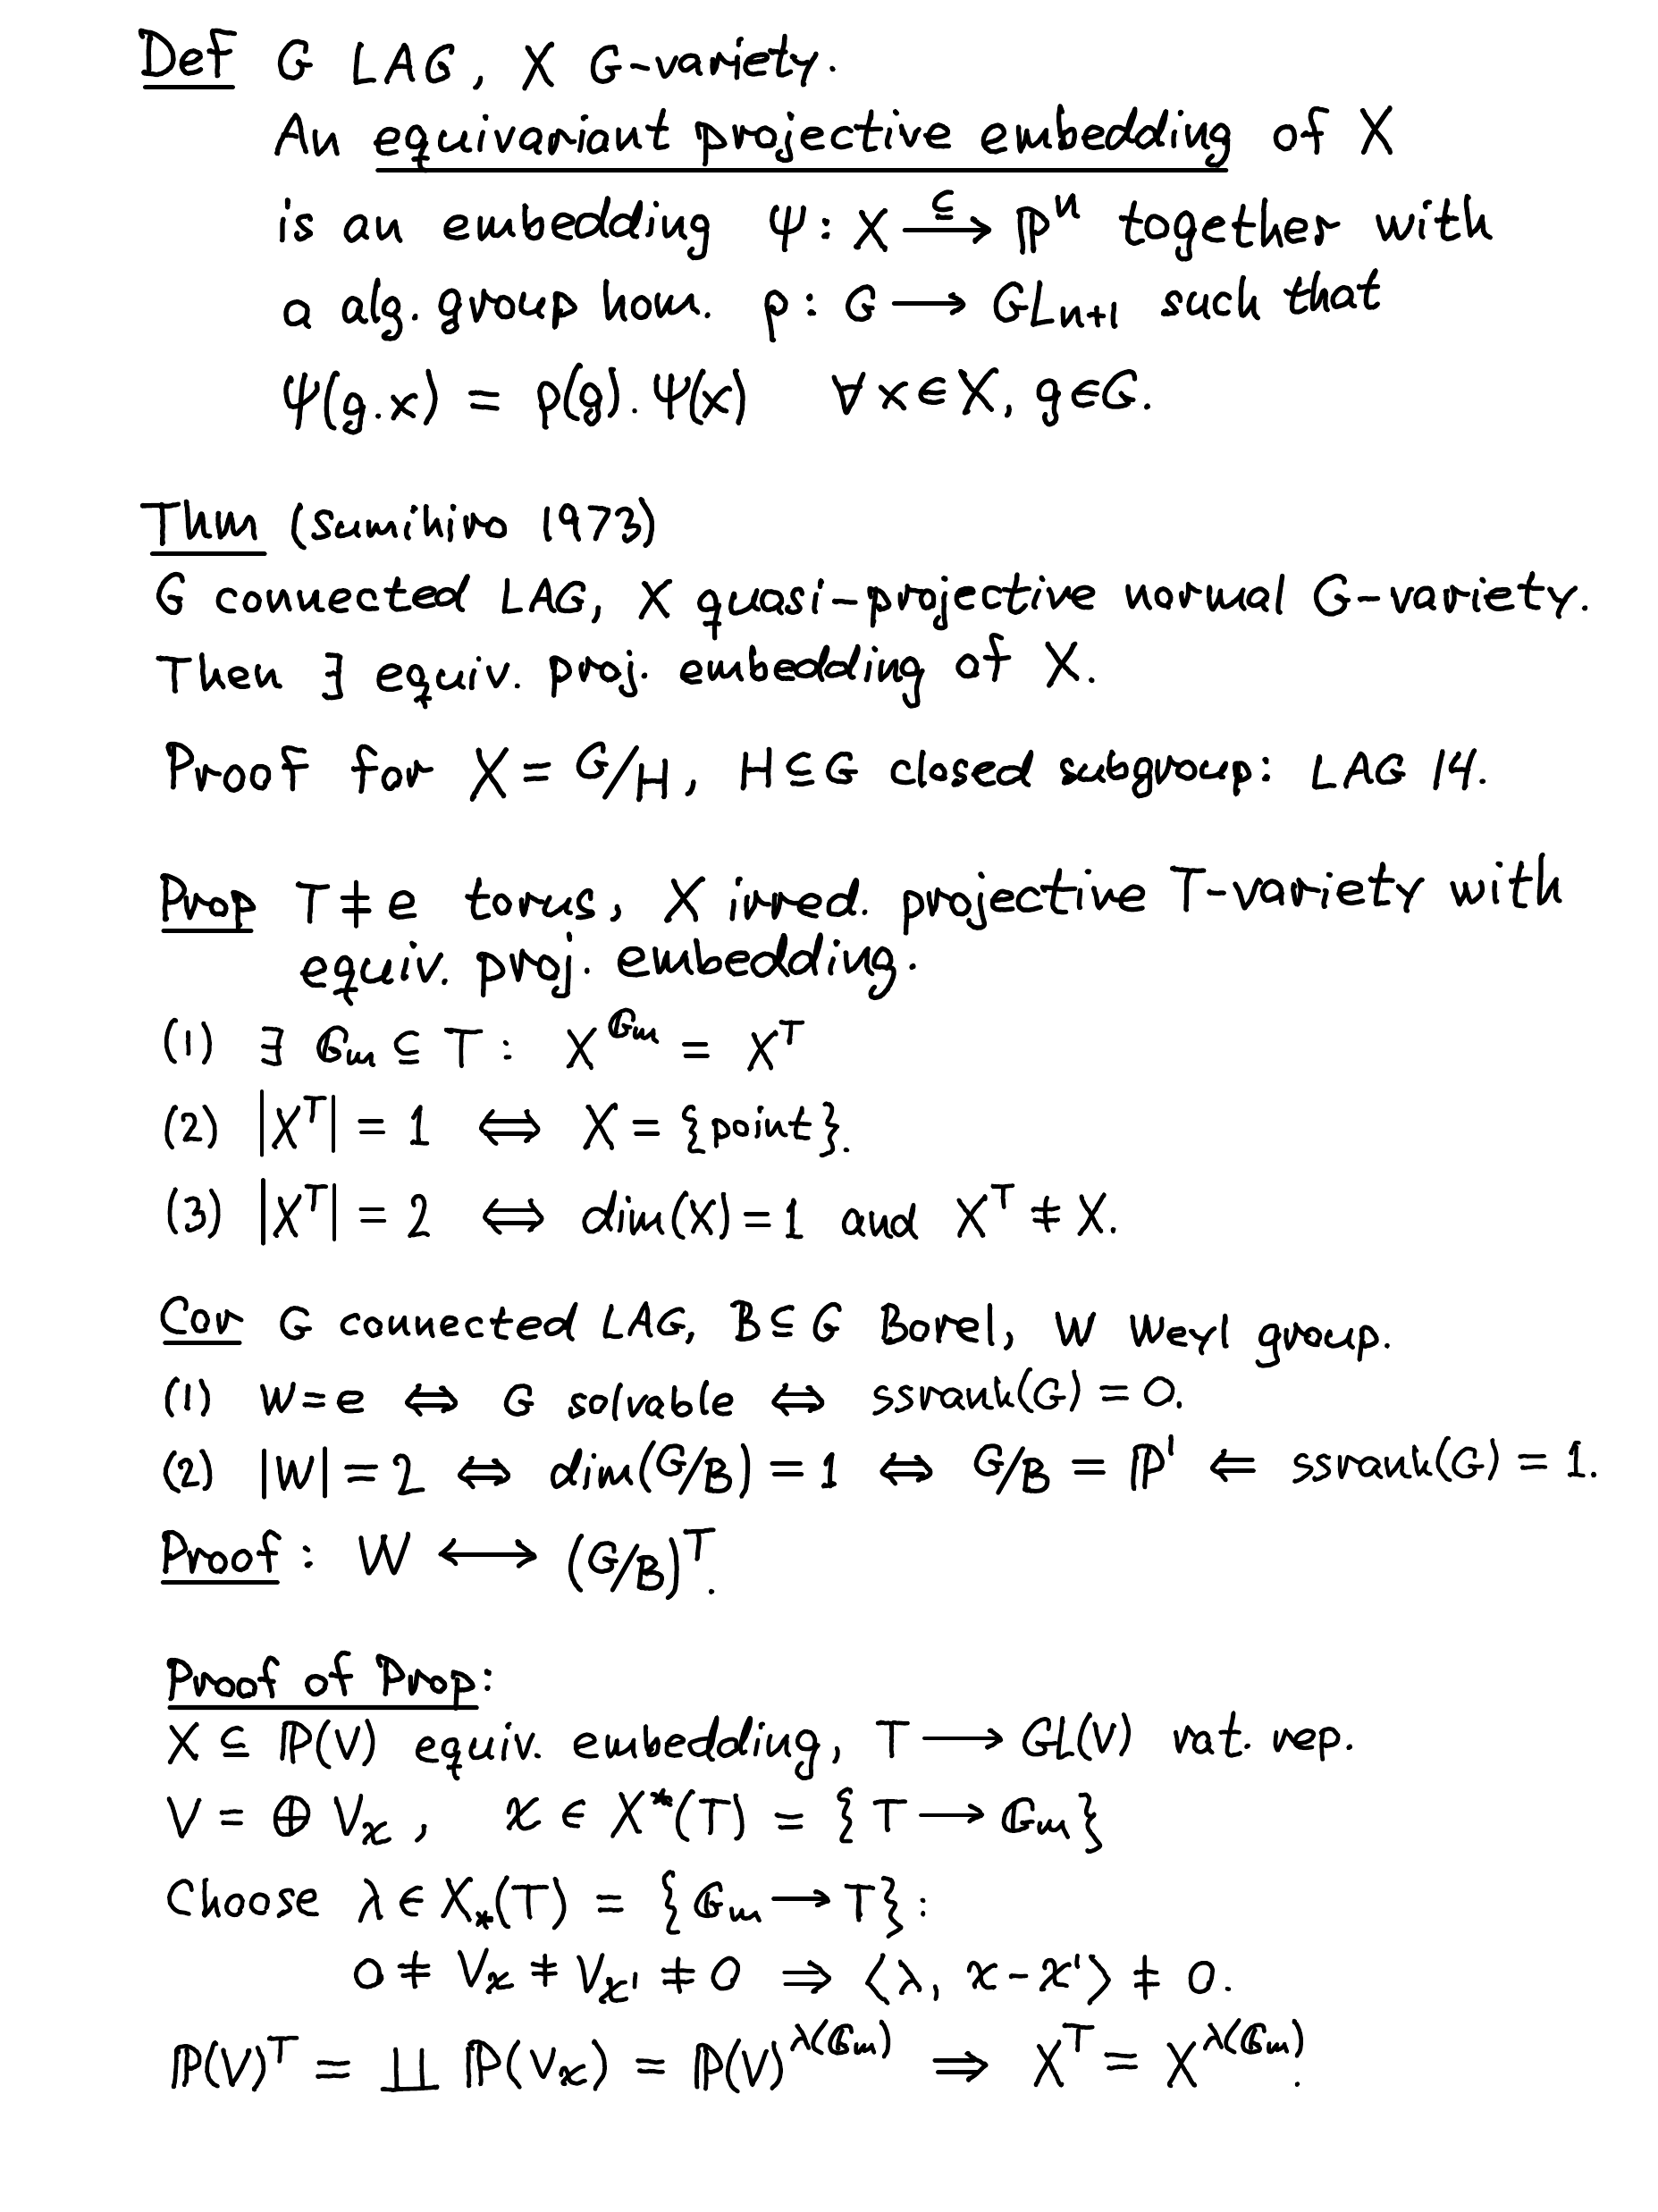 Def G LAG, X G-variety.
An equivariant projective embedding of X
is an embedding Ψ: X ⊆⟶ ℙⁿ together with
a alg. group hom. ρ: G ⟶ GLₙ₊₁ such that
Ψ(g.x) = ρ(g).Ψ(x) ∀ x∈X, g∈G.
Thm (Sumihiro 1973)
G connected LAG, X quasi-projective normal G-variety.
Then ∃ equiv. proj. embedding of X.
Proof for X = G/H, H⊆G closed subgroup: LAG 14.
Prop T≠e torus, X irred. projective T-variety with
equiv. proj. embedding.
(1) ∃ 𝔾m ⊆ T: X^𝔾m = X^T
(2) |X^T| = 1 ⇔ X = {point}.
(3) |X^T| = 2 ⇔ dim(X) = 1 and X^T ≠ X.
Cor G connected LAG, B⊆G Borel, W Weyl group.
(1) W=e ⇔ G solvable ⇔ ssrank(G) = 0.
(2) |W| = 2 ⇔ dim(G/B) = 1 ⇔ G/B = ℙ¹ ⇐ ssrank(G) = 1.
Proof: W ⟷ (G/B)^T.
Proof of Prop:
X ⊆ ℙ(V) equiv. embedding, T ⟶ GL(V) rat. rep.
V = ⊕ V_χ, χ ∈ X*(T) = {T ⟶ 𝔾m}
Choose λ ∈ X_*(T) = {𝔾m ⟶ T}:
0 ≠ V_χ ≠ V_χ' ≠ 0 ⇒ ⟨λ, χ-χ'⟩ ≠ 0.
ℙ(V)^T = ∐ ℙ(V_χ) = ℙ(V)^λ(𝔾m) ⇒ X^T = X^λ(𝔾m).